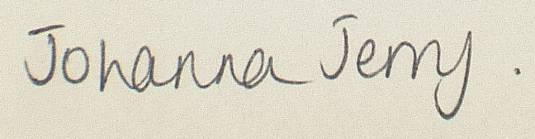 Johanna Jerry.